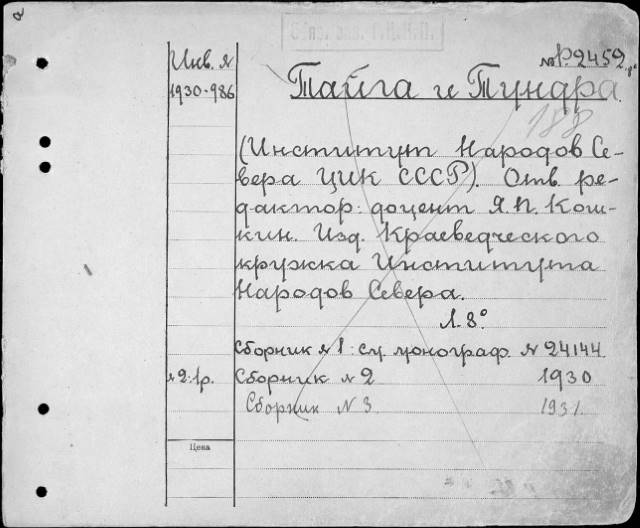 Инв. №
1930-986
№ Р.2452
Тайга и Тундра
188
(Институт Народов Се-
вера ЦИК СССР). Отв. ре-
дактор: доцент Я.П. Кош-
кин. Изд. Краеведческого
кружка Института
Народов Севера.
Л. 8°
Сборник №1: см. монограф. № 24144
№2: 1р. Сборник №2 1930
Сборник №3 1931.
Цена